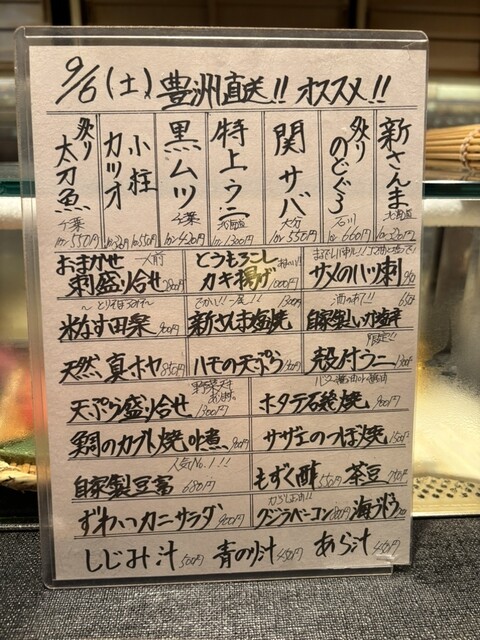 9/6(土) 豊洲直送!! オススメ!!
新さんま 北海道
炙り のどぐろ 石川 1カン 660円
関サバ 大分 1カン 550円
特上ウニ 北海道 1カン 1300円
黒ムツ 千葉 1カン 420円
小柱 1カン 550円
カツオ
炙り 太刀魚 千葉 1カン 550円
おまかせ 刺盛り合せ 一人前
とうもろこし カキ揚げ 1000円
サメのハツ刺
米なす田楽 900円
でかい!一尾!!
新さんま塩焼 1300円
自家製いか塩辛 650円
天然 真ホヤ
ハモの天ぷら
殻付ウニ
天ぷら盛り合せ 1300円
ホタテ石焼焼 900円
鯛のカブト焼 900円
サザエのつぼ焼 1500円
人気No.1!!
自家製豆富 680円
もずく酢 550円
茶豆
ずわいカニサラダ 900円
クジラベーコン
海ぶどう
しじみ汁 500円
青のり汁 450円
あら汁 450円